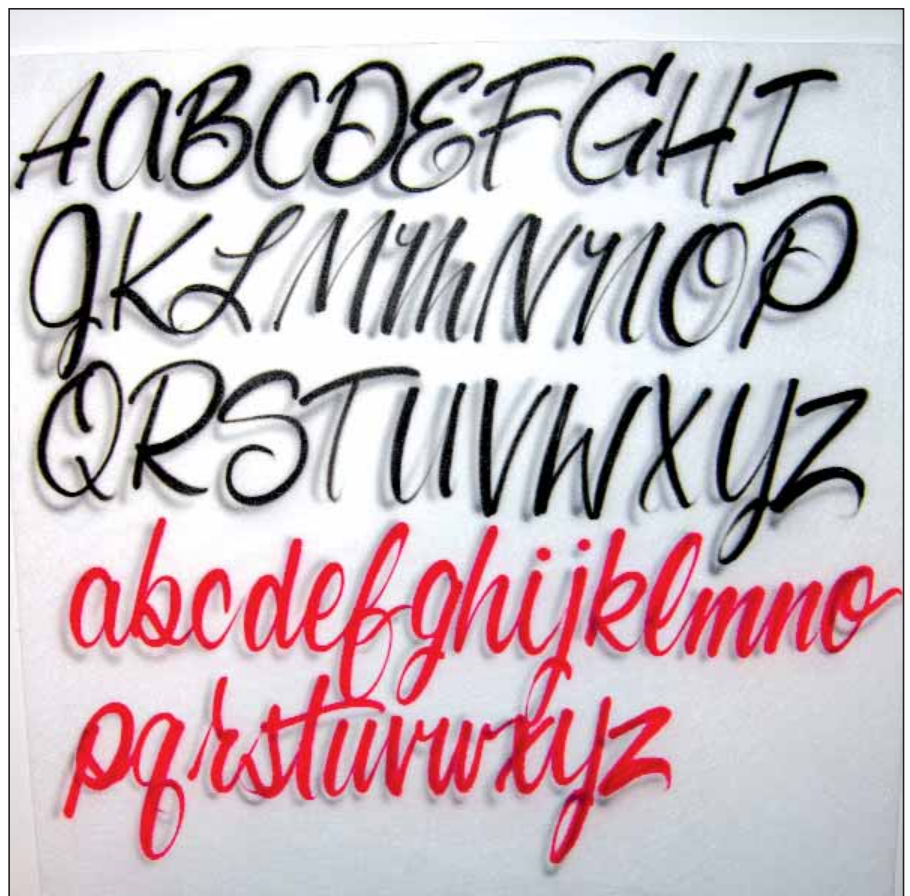 AaBCDEFGHI
JKLMmNnOP
QRSTUVWXYZ
abcdefghijklmno
pqrstuvwxyz